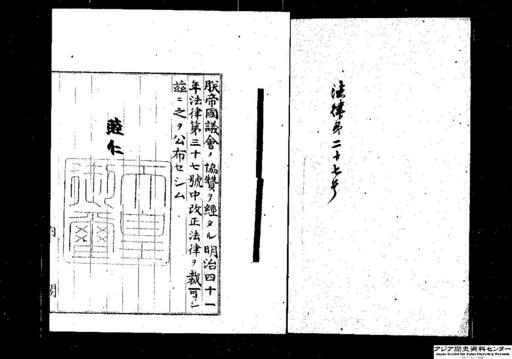 法律第二十七号
朕帝國議會ノ協賛ヲ經タル明治四十一
年法律第三十七號中改正法律ヲ裁可シ
茲ニ之ヲ公布セシム
睦仁
天皇
御璽
内閣
アジア歴史資料センター
Japan Center for Asian Historical Records